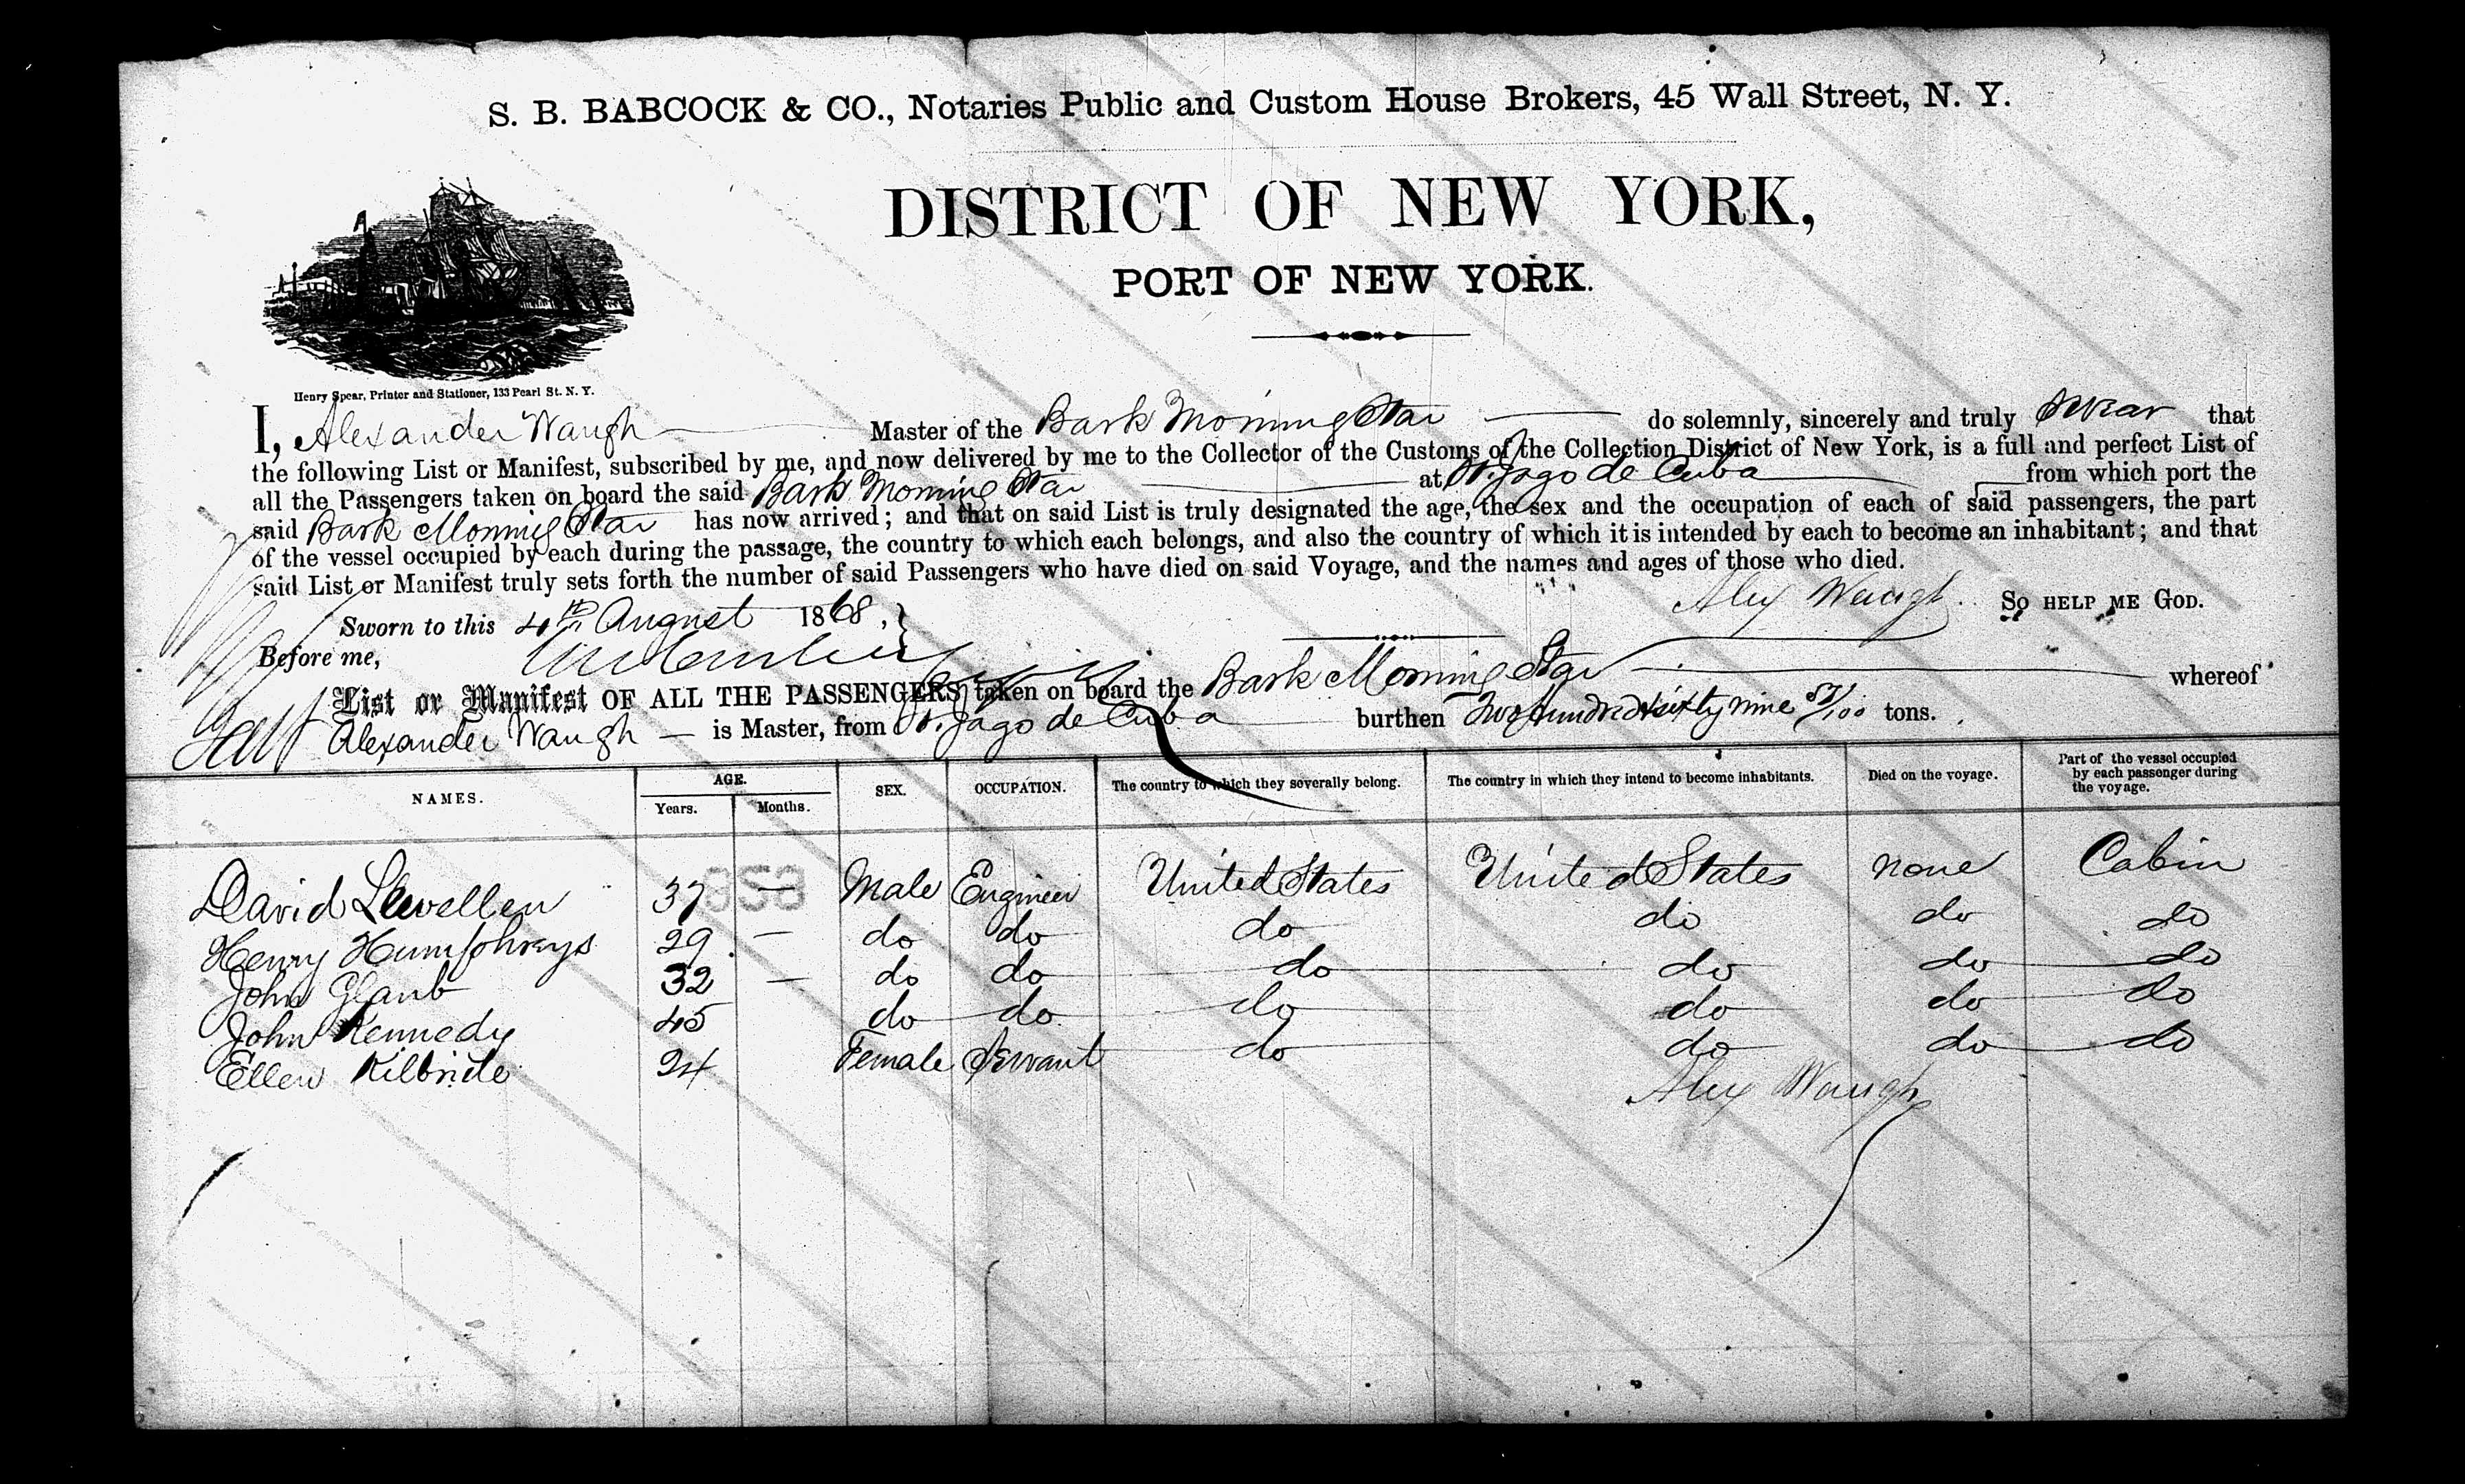 S. B. BABCOCK & CO., Notaries Public and Custom House Brokers, 45 Wall Street, N. Y.
DISTRICT OF NEW YORK,
PORT OF NEW YORK.
Henry Spear, Printer and Stationer, 133 Pearl St. N. Y.
I, Alexander Waugh Master of the Bark Morning Star do solemnly, sincerely and truly swear that
the following List or Manifest, subscribed by me, and now delivered by me to the Collector of the Customs of the Collection District of New York, is a full and perfect List of
all the Passengers taken on board the said Bark Morning Star at St. Jago de Cuba from which port the
said Bark Morning Star has now arrived; and that on said List is truly designated the age, the sex and the occupation of each of said passengers, the part
of the vessel occupied by each during the passage, the country to which each belongs, and also the country of which it is intended by each to become an inhabitant; and that
said List or Manifest truly sets forth the number of said Passengers who have died on said Voyage, and the names and ages of those who died.
Alex Waugh So HELP ME GOD.
Sworn to this 4th August 1868,
Before me,
List or Manifest OF ALL THE PASSENGERS taken on board the Bark Morning Star whereof
Alexander Waugh is Master, from St. Jago de Cuba burthen Two hundred sixty nine /100 tons.
NAMES. AGE. Years. Months. SEX. OCCUPATION. The country to which they severally belong. The country in which they intend to become inhabitants. Died on the voyage. Part of the vessel occupied by each passenger during the voyage.
David Llewellen 37 — Male Engineer United States United States none Cabin
Henry Humphreys 29 — do do do do do do
John Glanb 32 — do do do do do do
John Kennedy 45 do do do do do do
Ellen Kilbride 24 Female Servant do do do do
Alex Waugh